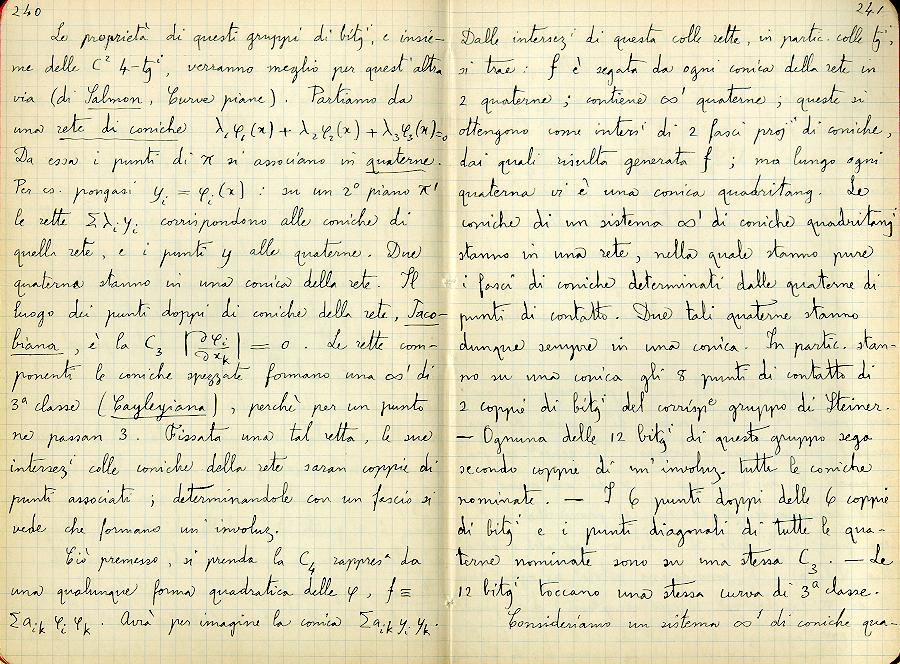 240
Le proprietà di questi gruppi di bitgⁱ, e insie-
me delle C² 4-tgⁱ, verranno meglio per quest'altra
via (di Salmon, Curve piane). Partiamo da
una rete di coniche λ₁φ₁(x) + λ₂φ₂(x) + λ₃φ₃(x)=0
Da essa i punti di π si associano in quaterne.
Per es. pongasi yᵢ = φᵢ(x) : su un 2° piano π'
le rette Σλᵢyᵢ corrispondono alle coniche di
quella rete, e i punti y alle quaterne. Due
quaterna stanno in una conica della rete. Il
luogo dei punti doppi di coniche della rete, Jaco-
biana, è la C₃ |∂φᵢ/∂xₖ| = 0. Le rette com-
ponenti le coniche spezzate formano una ∞¹ di
3ª classe (Cayleyiana), perchè per un punto
ne passan 3. Fissata una tal retta, le sue
intersezⁱ colle coniche della rete saran coppie di
punti associati ; determinandole con un fascio si
vede che formano un'involuz.
Ciò premesso, si prenda la C₄ rappresᵃ da
una qualunque forma quadratica delle φ, f ≡
Σaᵢₖ φᵢ φₖ. Avrà per imagine la conica Σaᵢₖ yᵢ yₖ.
241
Dalle intersezⁱ di questa colle rette, in partic. colle tgⁱ,
si trae : f è segata da ogni conica della rete in
2 quaterne ; contiene ∞¹ quaterne ; queste si
ottengono come intersⁱ di 2 fasci projⁱⁱ di coniche,
dai quali risulta generata f ; ma lungo ogni
quaterna vi è una conica quadritang. Le
coniche di un sistema ∞¹ di coniche quadritangⁱ
stanno in una rete, nella quale stanno pure
i fasci di coniche determinati dalle quaterne di
punti di contatto. Due tali quaterne stanno
dunque sempre in una conica. In partic. stan-
no su una conica gli 8 punti di contatto di
2 coppie di bitgⁱ del corrispᵉ gruppo di Steiner.
— Ognuna delle 12 bitgⁱ di questo gruppo sega
secondo coppie di un'involuz. tutte le coniche
nominate. — I 6 punti doppi delle 6 coppie
di bitgⁱ e i punti diagonali di tutte le qua-
terne nominate sono su una stessa C₃. — Le
12 bitgⁱ toccano una stessa curva di 3ª classe.
Consideriamo un sistema ∞¹ di coniche qua-